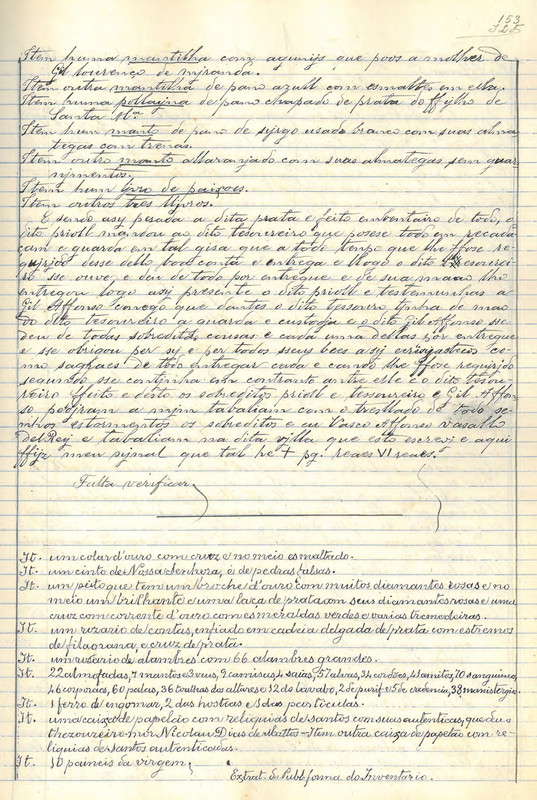 153
Item huma mantilha com aguinijs que poos a molher de
Gil Lourenço de Miranda.
Item outra mantilha de pano azull com esmaltes em ella.
Item huma de pano chapado de prata do ffijlho de
Santa Mª
Item hum manto de pano de sijrgo usado branco com suas alma
tegas com trenas.
Item outro manto allaranjado com suas almategas sem guar
nijmentos.
Item hum livro de paixoes.
Item outros tres livros.
E sendo asy pesada a dita prata e feito enventairo de todo, o
dito prioll mandou ao dito tesoureiro que posese todo em recada
çam e guarda em tal gisa que a todo tenpo que lhe ffose re
querido desse dello boa conta e entrega e llogo o dito tesourei
ro sse ouve e deu de todo por entregue e de sua maão lho
entregou logo asy presente o dito prioll e testemunhas a
Gil Affonso conego que dantes o dito tessouro tinha de mão
do dito tesoureiro a guarda e custodia e o dito Gil Affonso sse
deu de todas sobreditas cousas e cada uma dellas por entregue
e sse obrigou per sy e per todos sseus bees asy co
mo de todo entregar cada e cando lhe ffose requirjdo
segundo sse contjnha em contrauto antre elle e o dito tesou
reiro ffeito e desto os sobreditos prioll e tessoureiro e Gil Affon
so pedjram a mjm tabaliam com o trellado de todo se
nhos estormentos os sobreditos e eu Vasco Affonso vasallo
Del Rey e tabaliam na dita villa que esto escrevi e aqui
ffijz meu sjnal que tal he + pg. reaes VI reaes.
Falta verificar
It. um colar d'ouro com cruz e no meio esmaltado.
It. um cinto de Nossa Senhora, é de pedras falsas.
It. um peito que tem um broche d'ouro com muitos diamantes rosas e no
meio um brilhante e uma laça de prata com seus diamantes rosas e uma
cruz com corrente d'ouro com esmeraldas verdes e varias tremedeiras.
It. um rozario de contas, enfiado em cadeia delgada de prata com estremos
de filagrana, e cruz de prata.
It. um rosario de alambres com 66 alambres grandes.
It. 22 almofadas, 7 mantos e 3 veus, 9 camisas, 4 saias, 57 alvas, 34 cordões, 41 amitos, 70 sanguinos,
46 corporaes, 60 palas, 36 toalhas dos altares e 12 do lavabo, 2 de purif. e 5 de credencia, 38 manistergio.
It. 1 ferro de engomar, 2 das hostias e 1 das particulas.
It. uma caixa de papelão com reliquias de santos com suas autenticas, que deu o
thezoureiro-mór Nicolau Dias de Mattos - Item outra caixa de papelão com re-
liquias de santos autenticadas.
It. 10 paineis da virgem;
Extrat. da Publ. forma do Inventario.